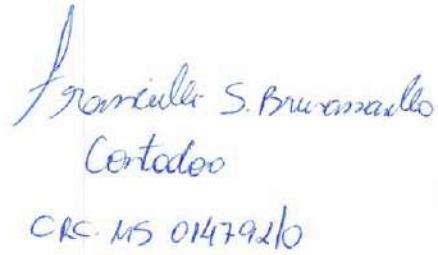 Francielli S. Brunassarello
Contador
CRC. MS 014792/0